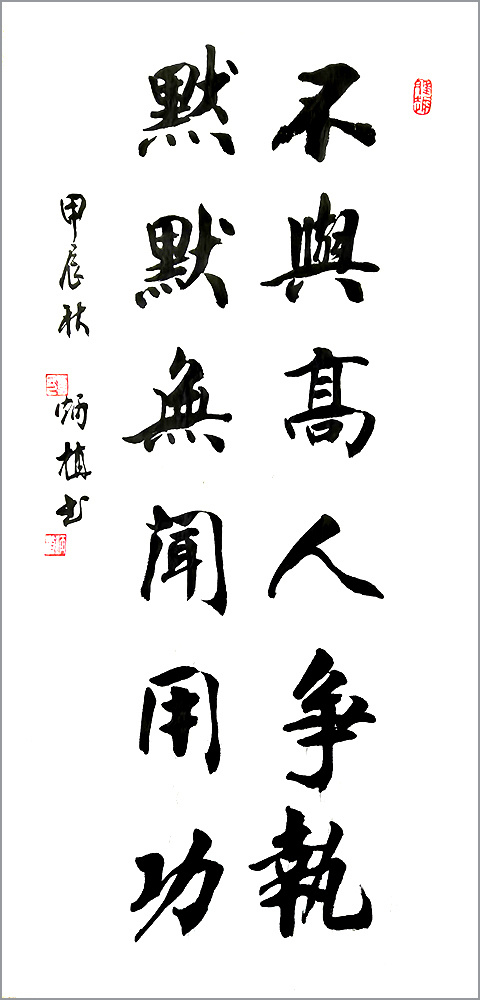 不與高人爭執
默默無聞用功
甲辰秋 炳植书